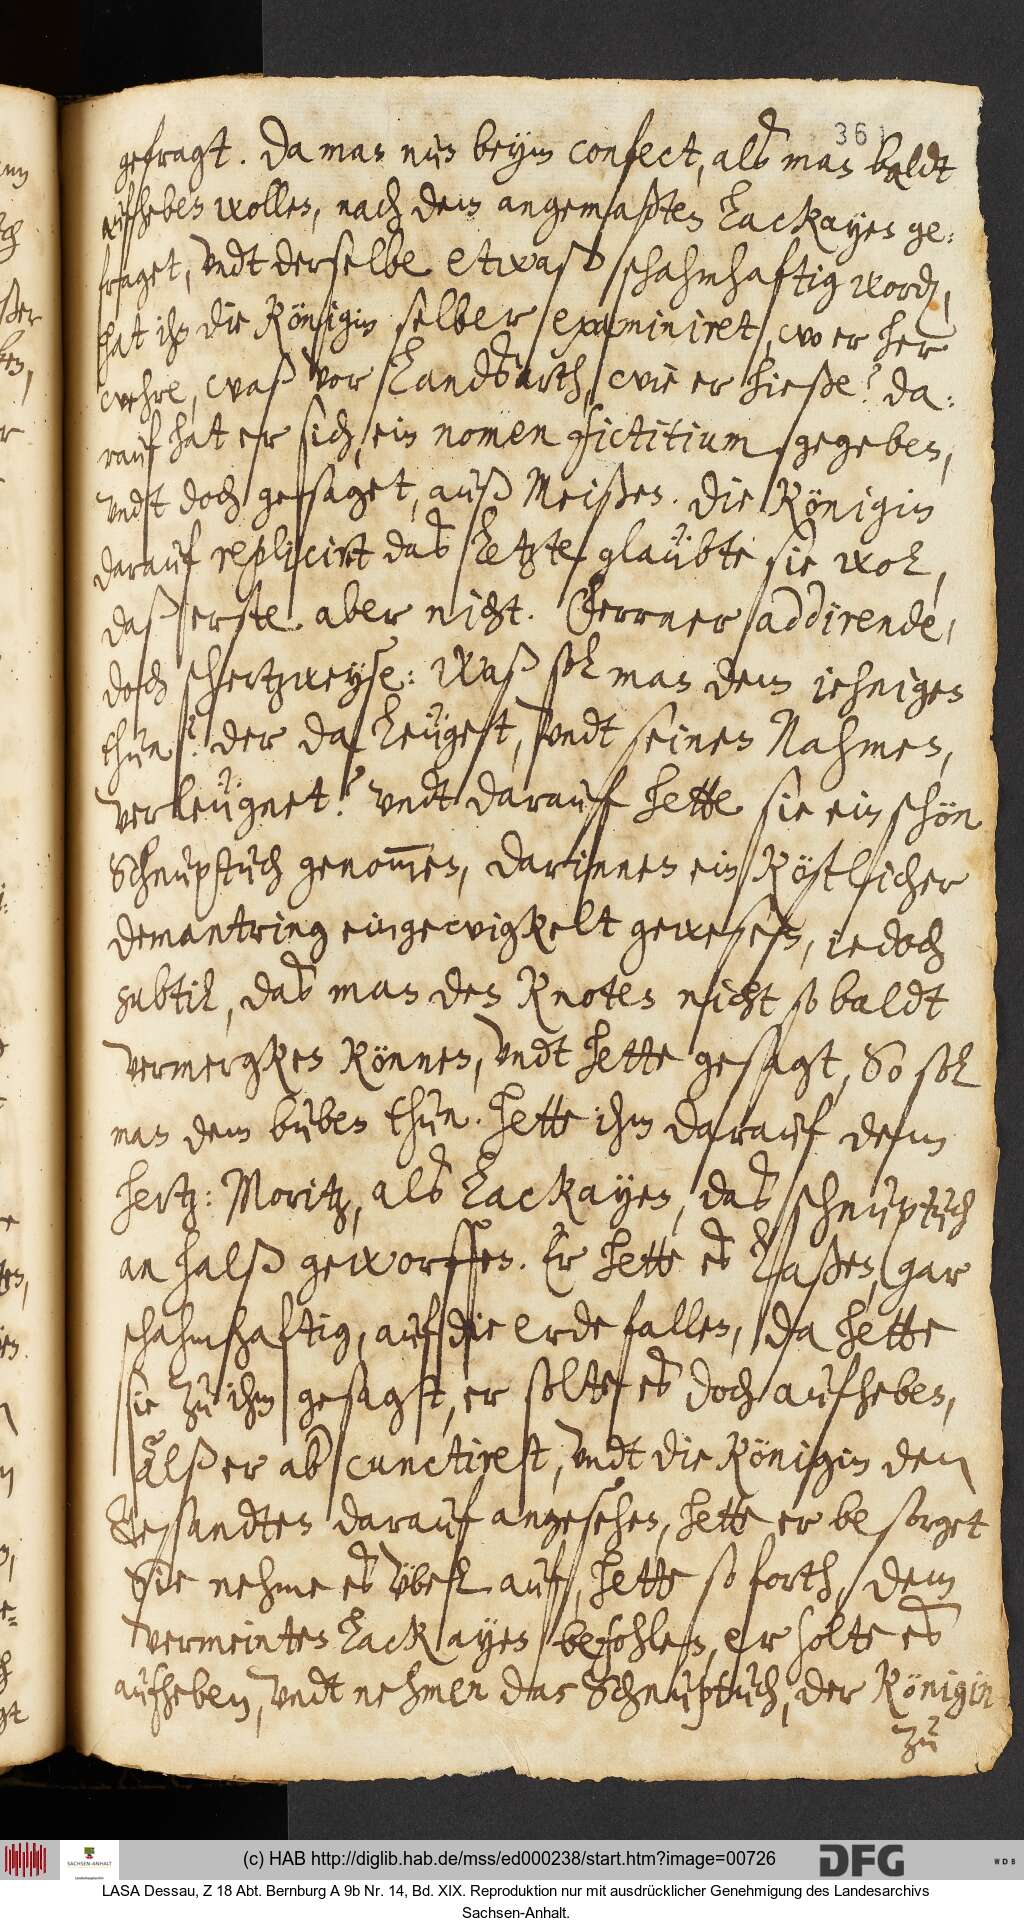 361
gefragt. Da man nun beym confect, als man baldt
aufheben wollen, nach dem angemaßten Lackayen ge-
fraget, undt derselbe etwaß schahmhaftig worden,
hat ihn die Königin selber examiniret, wo er her
wehre, waß vor Landsarth, wie er hieße? da-
rauf hat er sich, ein nomen fictitium gegeben,
undt doch gesaget, auß Meißen. Die Königin
darauf replicirt das Letzte glaubte sie wol,
daß erste aber nicht. Ferrner addirende,
doch schertzweyse: Waß sol man dem iehnigen
thun? der da leuget, undt seinen Nahmen,
verleugnet? undt darauf hette sie ein schön
Schnuptuch genom̅en, darinnen ein Köstlicher
demantring eingewigkelt gewesen, iedoch
subtil, das man den Knoten nicht so baldt
vermergken können, undt hette gesagt, So sol
man dem buben thun. Hette ihm darauf dem
Hertz: Moritz, als Lackayen, das schnuptuch
an halß geworffen. Er hette es laßen, gar
schahmhaftig, auf die erde fallen, da hette
sie zu ihm gesagt, er solte es doch aufheben,
Alß er ab cunctiret, undt die Königin den
Gesandten darauf angesehen, hette er besorget
Sie nehme es übel auf, hette so forth, dem
vermeinten Lackayen befohlen, er solte es
aufheben, undt nehmen das Schnuptuch, der Königin
zu
(c) HAB http://diglib.hab.de/mss/ed000238/start.htm?image=00726
DFG
WDB
SACHSEN-ANHALT
LASA Dessau, Z 18 Abt. Bernburg A 9b Nr. 14, Bd. XIX. Reproduktion nur mit ausdrücklicher Genehmigung des Landesarchivs
Sachsen-Anhalt.